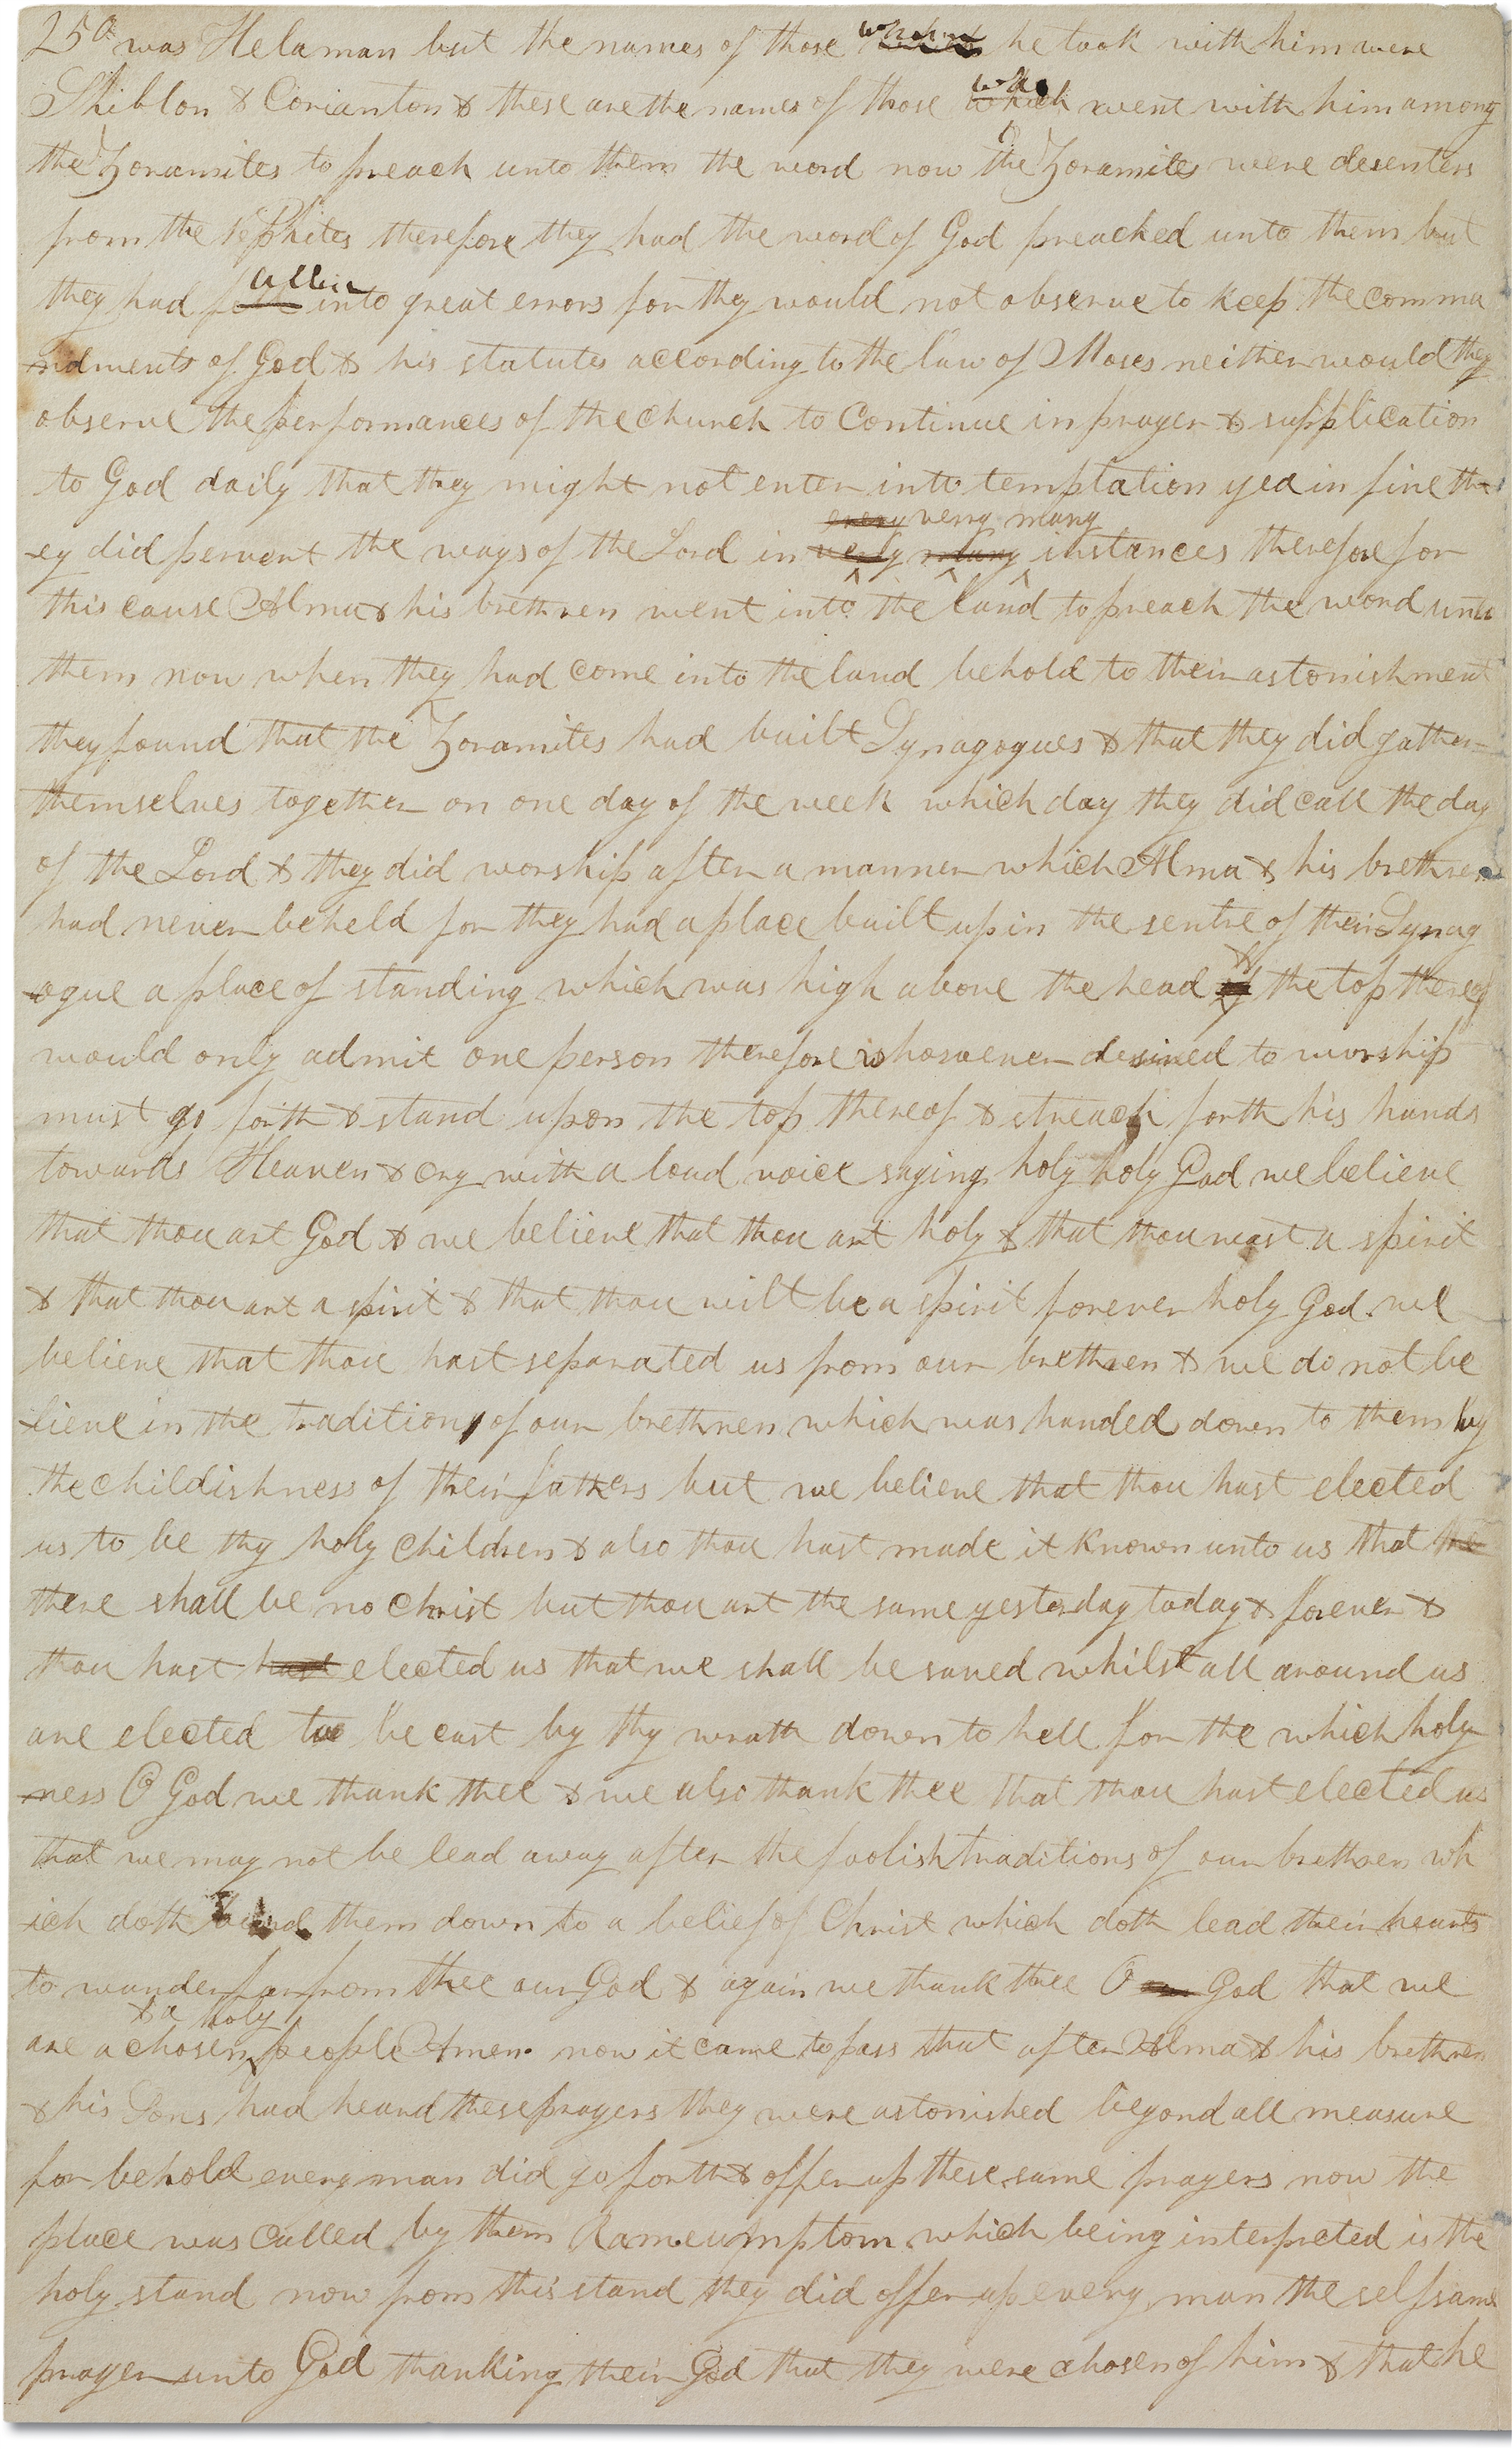 250 was Helaman but the names of those whom he took with him were
Shiblon & Corianton & these are the names of those which who went with him among
the Zoramites to preach unto them the word now the Zoramites were desenters
from the Nephites therefore they had the word of God preached unto them but
allen
they had fell into great errors for thy would not observe to keep the comma
-ndments of God & his statutes according to the law of Moses neither would they
observe the performances of the church to Continue in prayer & supplication
to God daily that they might not enter into temptation yea in fine th
every very many
-ey did pervert the ways of the Lord in very many instances therefore for
this cause Alma & his brethren went into the land to preach the word unto
them now when they had come into the land behold to their astonishment
they found that the Zoramites had built Synagogues & that they did gather
themselves together on one day of the week which day they did call the day
of the Lord & they did worship after a manner which Alma & his brethren
had never beheld for they had a place built up in the sentre of their Synag
-ogue a place of standing which was high above the head & the top thereof
would only admit one person therefore whosoever desired to worship
must go forth & stand upon the top thereof & streach forth his hands
towards Heaven & cry with a loud voice saying holy holy God we believe
that thou art God & we believe that thou art holy & that thou wast a spirit
& that thou art a spirit & that thou wilt be a spirit forever holy God we
believe that thou hast separated us from our brethren & we do not be
-lieve in the tradition of our brethren which was handed down to them by
the childishness of their fathers but we believe that thou hast elected
us to be thy holy children & also thou hast made it known unto us that the
there shall be no Christ but thou art the same yesterday today & forever &
thou hast hast elected us that we shall be saved whilst all around us
are elected to be cast by thy wrath down to hell for the which holy
-ness O God we thank thee & we also thank thee that thou hast elected us
that we may not be lead away after the foolish traditions of our brethren wh
-ich doth bind them down to a belief of Christ which doth lead their hearts
to wander far from thee our God & again we thank thee O God that we
& a holy
are a chosen people Amen now it came to pass that after Alma & his brethren
& his Sons had heard these prayers they were astonished beyond all measure
for behold every man did go forth & offer up these same prayers now the
place was called by them Rameumptom which being interpreted is the
holy stand now from this stand they did offer up every man the selfsame
prayer unto God thanking their God that they were chosen of him & that he